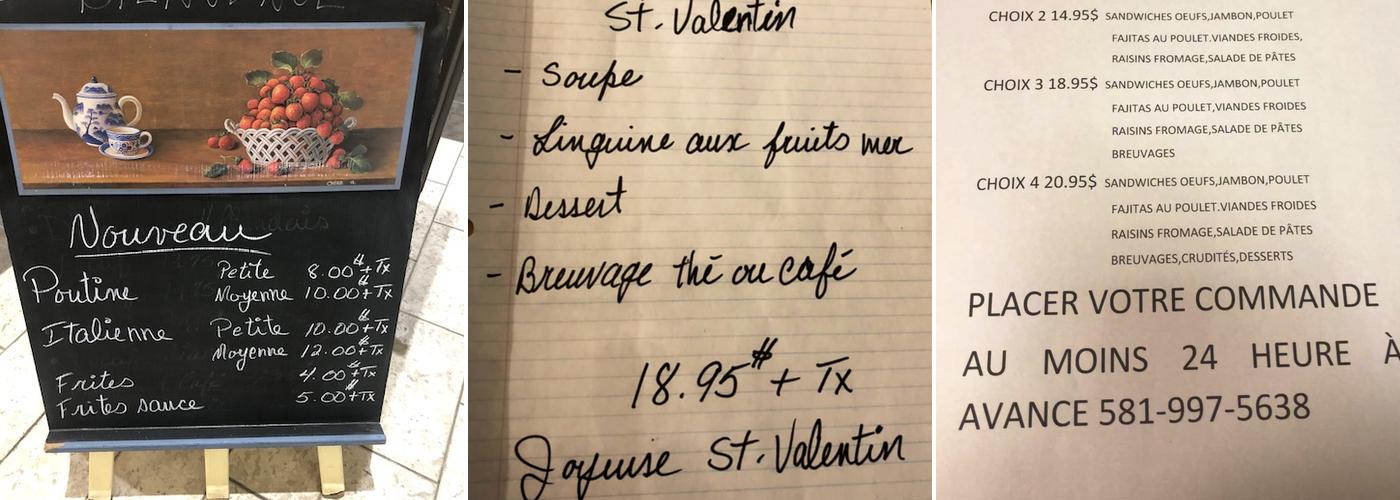 BIENVENUE
Nouveau
Poutine Petite 8.00$+Tx
Moyenne 10.00$+Tx
Italienne Petite 10.00$+Tx
Moyenne 12.00$+Tx
Frites 4.00$+Tx
Frites sauce 5.00$+Tx
St. Valentin
- Soupe
- Linguine aux fruits mer
- Dessert
- Breuvage thé ou café
18.95$ + Tx
Joyeuse St. Valentin
CHOIX 2 14.95$ SANDWICHES OEUFS,JAMBON,POULET
FAJITAS AU POULET.VIANDES FROIDES,
RAISINS FROMAGE,SALADE DE PÂTES
CHOIX 3 18.95$ SANDWICHES OEUFS,JAMBON,POULET
FAJITAS AU POULET,VIANDES FROIDES
RAISINS FROMAGE,SALADE DE PÂTES
BREUVAGES
CHOIX 4 20.95$ SANDWICHES OEUFS,JAMBON,POULET
FAJITAS AU POULET.VIANDES FROIDES
RAISINS FROMAGE,SALADE DE PÂTES
BREUVAGES,CRUDITÉS,DESSERTS
PLACER VOTRE COMMANDE
AU MOINS 24 HEURE À
AVANCE 581-997-5638